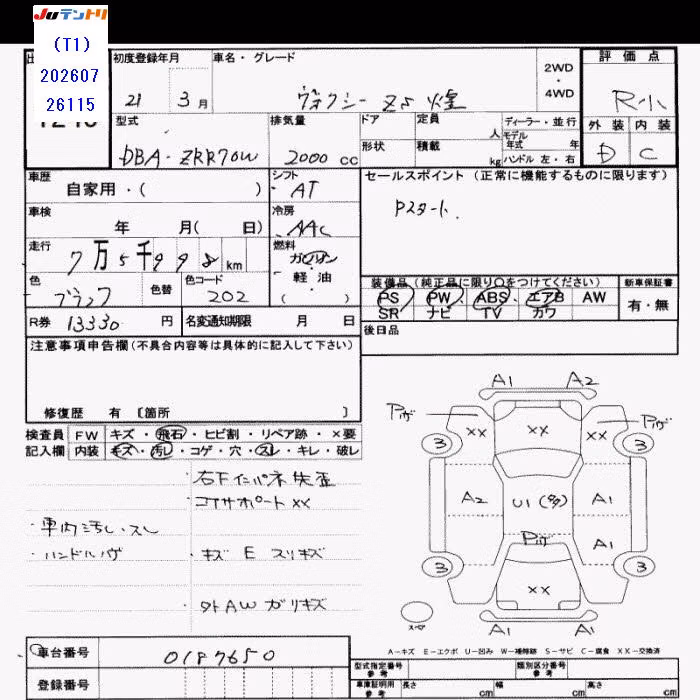 Juテントリ
(T1)
202607
26115
初度登録年月
車名・グレード
2WD
・
4WD
評価点
21 3月
ヴォクシー ZS 煌
R小
型式
排気量
ドア
定員
人
ディーラー・並行
モデル年式 年
外装 内装
DBA-ZRR70W
2000 cc
形状
積載
kg
ハンドル 左・右
D C
車歴
自家用・( )
シフト
AT
セールスポイント (正常に機能するものに限ります)
Pスタート.
車検
年 月( 日)
冷房
AAC
走行
7万5千998km
燃料
ガソリン
・
軽油
( )
色
ブラック
色替
色コード
202
装備品 (純正品に限り○をつけてください)
新車保証書
PS PW ABS エアB AW
有・無
SR ナビ TV カワ
R券 13330 円
名変通知期限 月 日
後日品
注意事項申告欄(不具合内容等は具体的に記入して下さい)
修復歴 有 〔箇所 〕
検査員 FW キズ・飛石・ヒビ割・リペア跡・×要
記入欄 内装 キズ・汚し・コゲ・穴・スレ・キレ・破レ
右下インパネ失歪
コアサポートXX
・車内汚し・スレ
・ハンドルハゲ
・キズ E スリキズ
・外AW ガリキズ
A1 A2
Pハゲ
Pハゲ
XX XX XX
3 3
A2 U1(多) A1
Pハゲ
A1
3 3
XX
スペア
A1 A1
A-キズ E-エクボ U-凹み W-補修跡 S-サビ C-腐食 XX-交換済
車台番号 0187650
登録番号
型式指定番号
参考
類別区分番号
参考
車庫証明用
参考
長さ cm
幅 cm
高さ cm